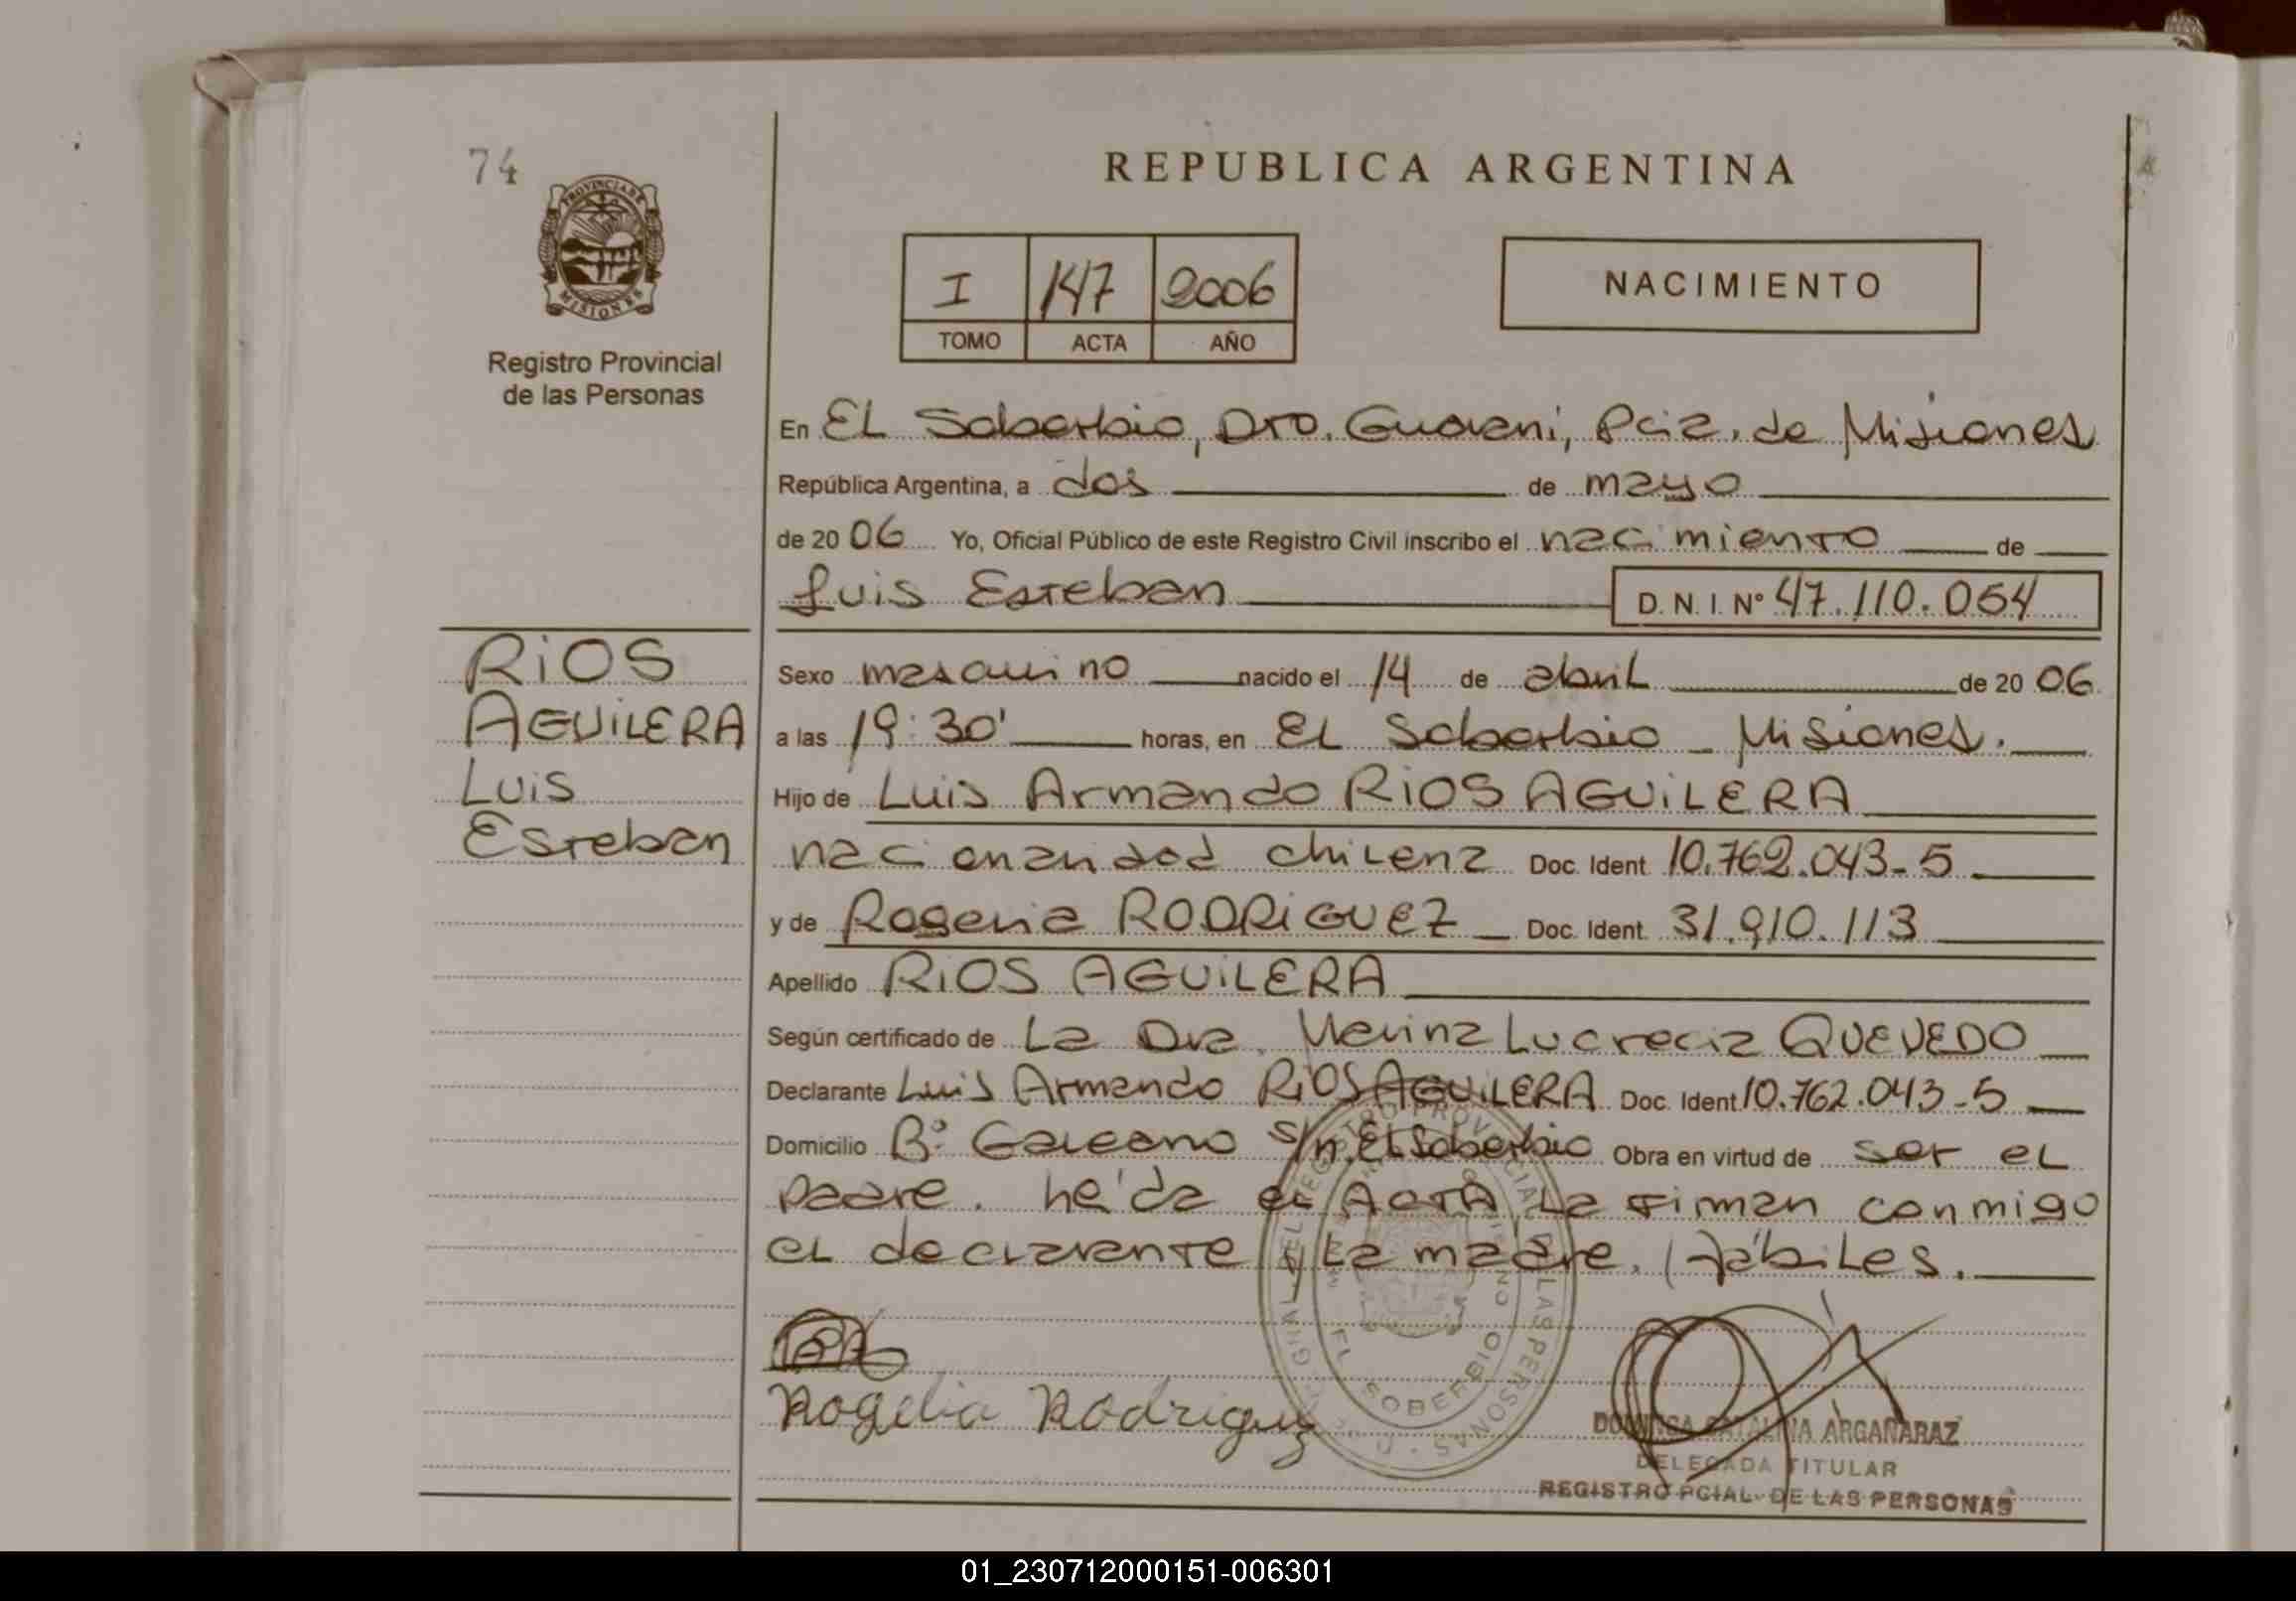 74
PROVINCIA DE
MISIONES
Registro Provincial
de las Personas
REPUBLICA ARGENTINA
I 147 2006
TOMO ACTA AÑO
NACIMIENTO
En EL Soberbio, Dto. Guarani, Pcia. de Misiones
República Argentina, a dos de mayo
de 2006 Yo, Oficial Público de este Registro Civil inscribo el nacimiento de
Luis Esteban D.N.I. Nº 47.110.054
RiOS
AGUiLERA
Luis
Esteban
Sexo masculino nacido el 14 de abril de 2006
a las 19:30' horas, en EL Soberbio - Misiones.
Hijo de Luis Armando RiOS AGUiLERA
nacionalidad chilena Doc. Ident. 10.762.043-5
y de Rogelia RODRiGUEZ Doc. Ident. 31.910.113
Apellido RiOS AGUiLERA
Según certificado de La Dra. Lucrecia QUEVEDO
Declarante Luis Armando RiOS AGUiLERA Doc. Ident. 10.762.043-5
Domicilio Bº s/n. EL Soberbio Obra en virtud de ser el
padre. Leída el ACTA, La firman conmigo
el declarante y La madre. Hábiles.
Rogelia Rodriguez
EL SOBERBIO
DOMINGA CATALINA ARGAÑARAZ
DELEGADA TITULAR
REGISTRO PCIAL. DE LAS PERSONAS
01_230712000151-006301